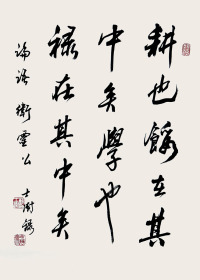 耕也餒在其
中矣學也
祿在其中矣
論語衛靈公
士澍錄